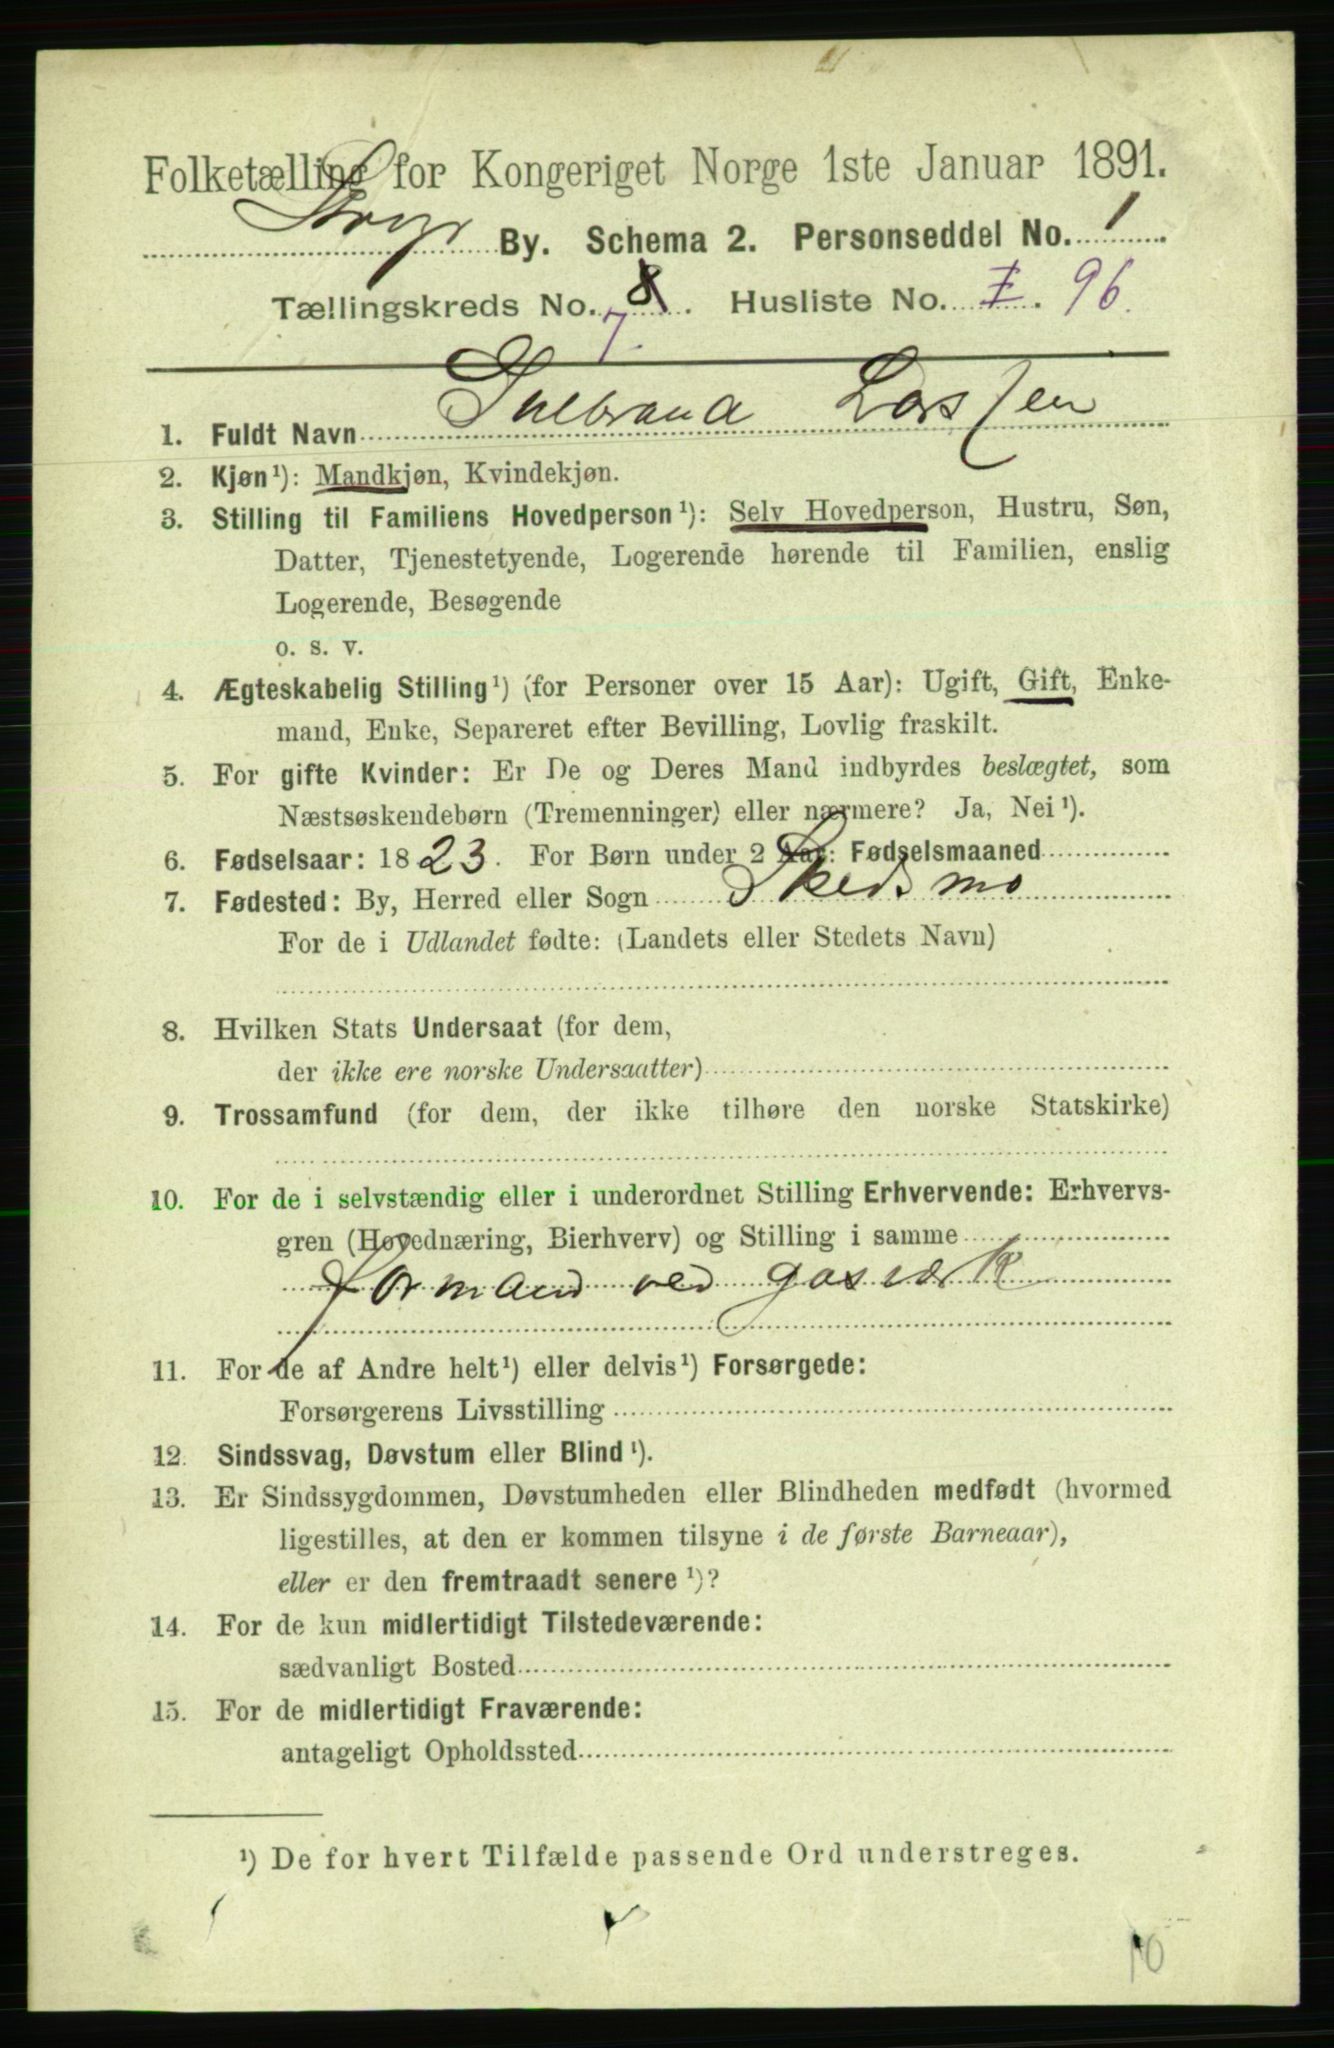 Folketælling for Kongeriget Norge 1ste Januar 1891.
By. Schema 2. Personseddel No. 1
Tællingskreds No. 8. Husliste No. I. 96.
7.
1. Fuldt Navn Gulbrand Larssen
2. Kjøn¹): Mandkjøn, Kvindekjøn.
3. Stilling til Familiens Hovedperson¹): Selv Hovedperson, Hustru, Søn,
Datter, Tjenestetyende, Logerende hørende til Familien, enslig
Logerende, Besøgende
o. s. v.
4. Ægteskabelig Stilling¹) (for Personer over 15 Aar): Ugift, Gift, Enke-
mand, Enke, Separeret efter Bevilling, Lovlig fraskilt.
5. For gifte Kvinder: Er De og Deres Mand indbyrdes beslægtet, som
Næstsøskendebørn (Tremenninger) eller nærmere? Ja, Nei¹).
6. Fødselsaar: 1823. For Børn under 2 Aar: Fødselsmaaned
7. Fødested: By, Herred eller Sogn Skedsmo
For de i Udlandet fødte: (Landets eller Stedets Navn)
8. Hvilken Stats Undersaat (for dem,
der ikke ere norske Undersaatter)
9. Trossamfund (for dem, der ikke tilhøre den norske Statskirke)
10. For de i selvstændig eller i underordnet Stilling Erhvervende: Erhvervs-
gren (Hovednæring, Bierhverv) og Stilling i samme
formand ved gasværk
11. For de af Andre helt¹) eller delvis¹) Forsørgede:
Forsørgerens Livsstilling
12. Sindssvag, Døvstum eller Blind¹).
13. Er Sindssygdommen, Døvstumheden eller Blindheden medfødt (hvormed
ligestilles, at den er kommen tilsyne i de første Barneaar),
eller er den fremtraadt senere¹)?
14. For de kun midlertidigt Tilstedeværende:
sædvanligt Bosted
15. For de midlertidigt Fraværende:
antageligt Opholdssted
¹) De for hvert Tilfælde passende Ord understreges.
10